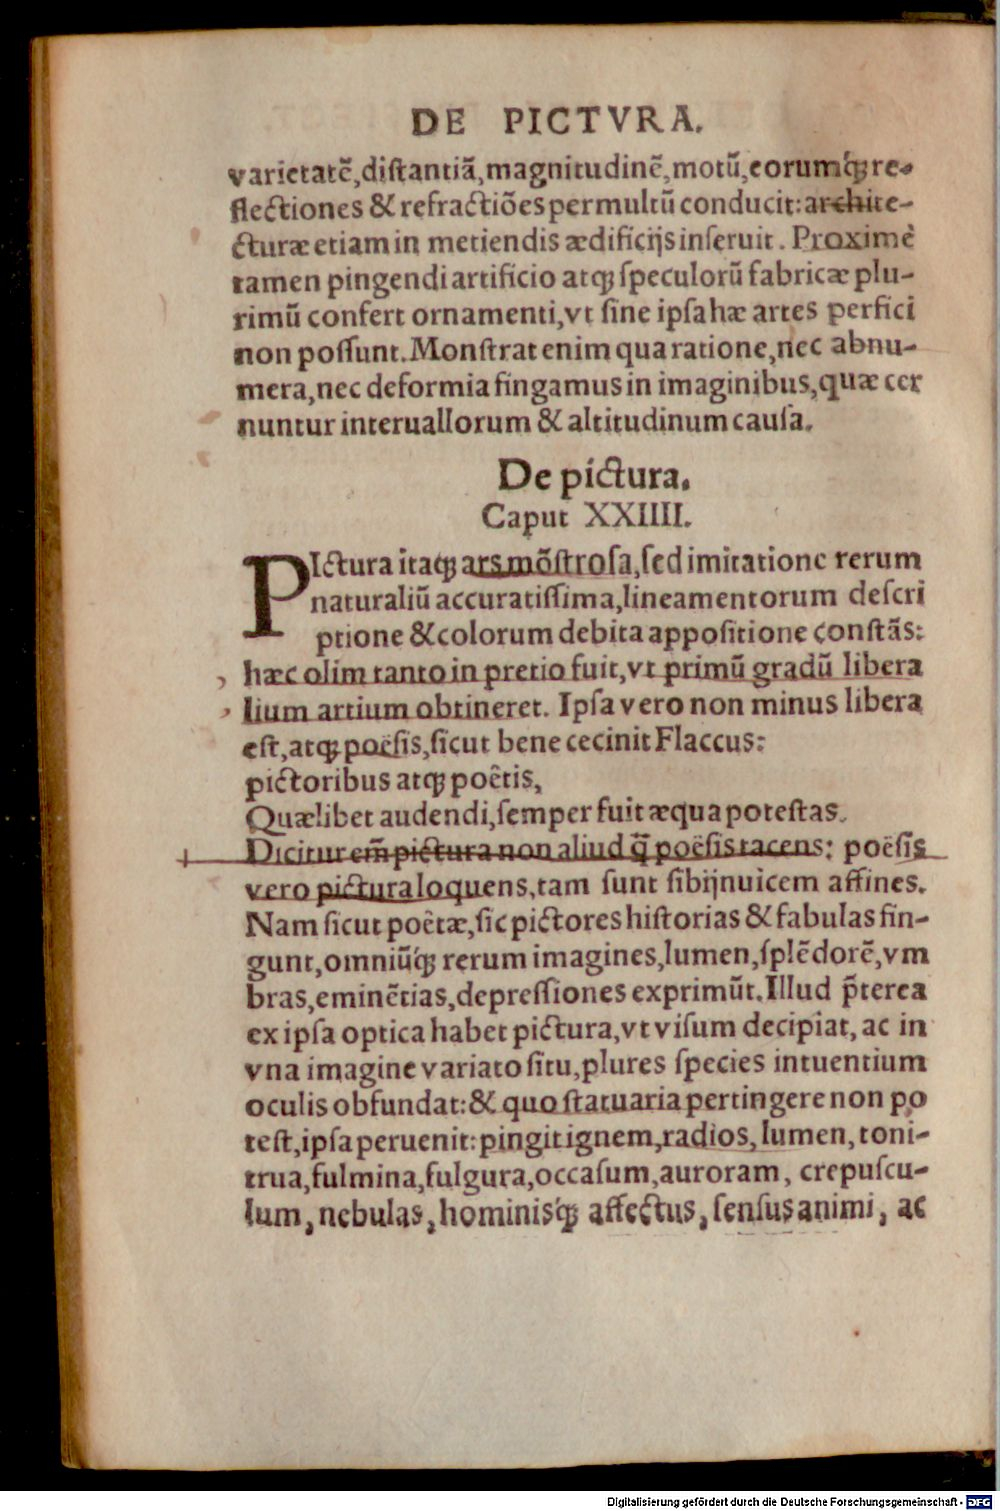 DE PICTVRA.
varietatē, distantiā, magnitudinē, motū, eorumq́ꝫ re-
flectiones & refractiões permultū conducit: archite-
cturæ etiam in metiendis ædificijs inseruit. Proximè
tamen pingendi artificio atqꝫ speculorū fabricæ plu-
rimū confert ornamenti, vt sine ipsa hæ artes perfici
non possunt. Monstrat enim qua ratione, nec abnu-
mera, nec deformia fingamus in imaginibus, quæ cer
nuntur interuallorum & altitudinum causa.
De pictura.
Caput XXIIII.
PIctura itaqꝫ ars mōstrosa, sed imitatione rerum
naturaliū accuratissima, lineamentorum descri
ptione & colorum debita appositione constās:
hæc olim tanto in pretio fuit, vt primū gradū libera
lium artium obtineret. Ipsa vero non minus libera
est, atqꝫ poësis, sicut bene cecinit Flaccus:
pictoribus atqꝫ poêtis,
Quælibet audendi, semper fuit æqua potestas.
Dicitur em̄ pictura non aliud q̄̃ poësis tacens: poësis
vero pictura loquens, tam sunt sibijnuicem affines.
Nam sicut poêtæ, sic pictores historias & fabulas fin-
gunt, omniūq́ꝫ rerum imagines, lumen, splēdorē, vm
bras, eminētias, depressiones exprimūt. Illud p̄terea
ex ipsa optica habet pictura, vt visum decipiat, ac in
vna imagine variato situ, plures species intuentium
oculis obfundat: & quo statuaria pertingere non po
test, ipsa peruenit: pingit ignem, radios, lumen, toni-
trua, fulmina, fulgura, occasum, auroram, crepuscu-
lum, nebulas, hominisq́ꝫ affectus, sensus animi, ac
Digitalisierung gefördert durch die Deutsche Forschungsgemeinschaft - DFG